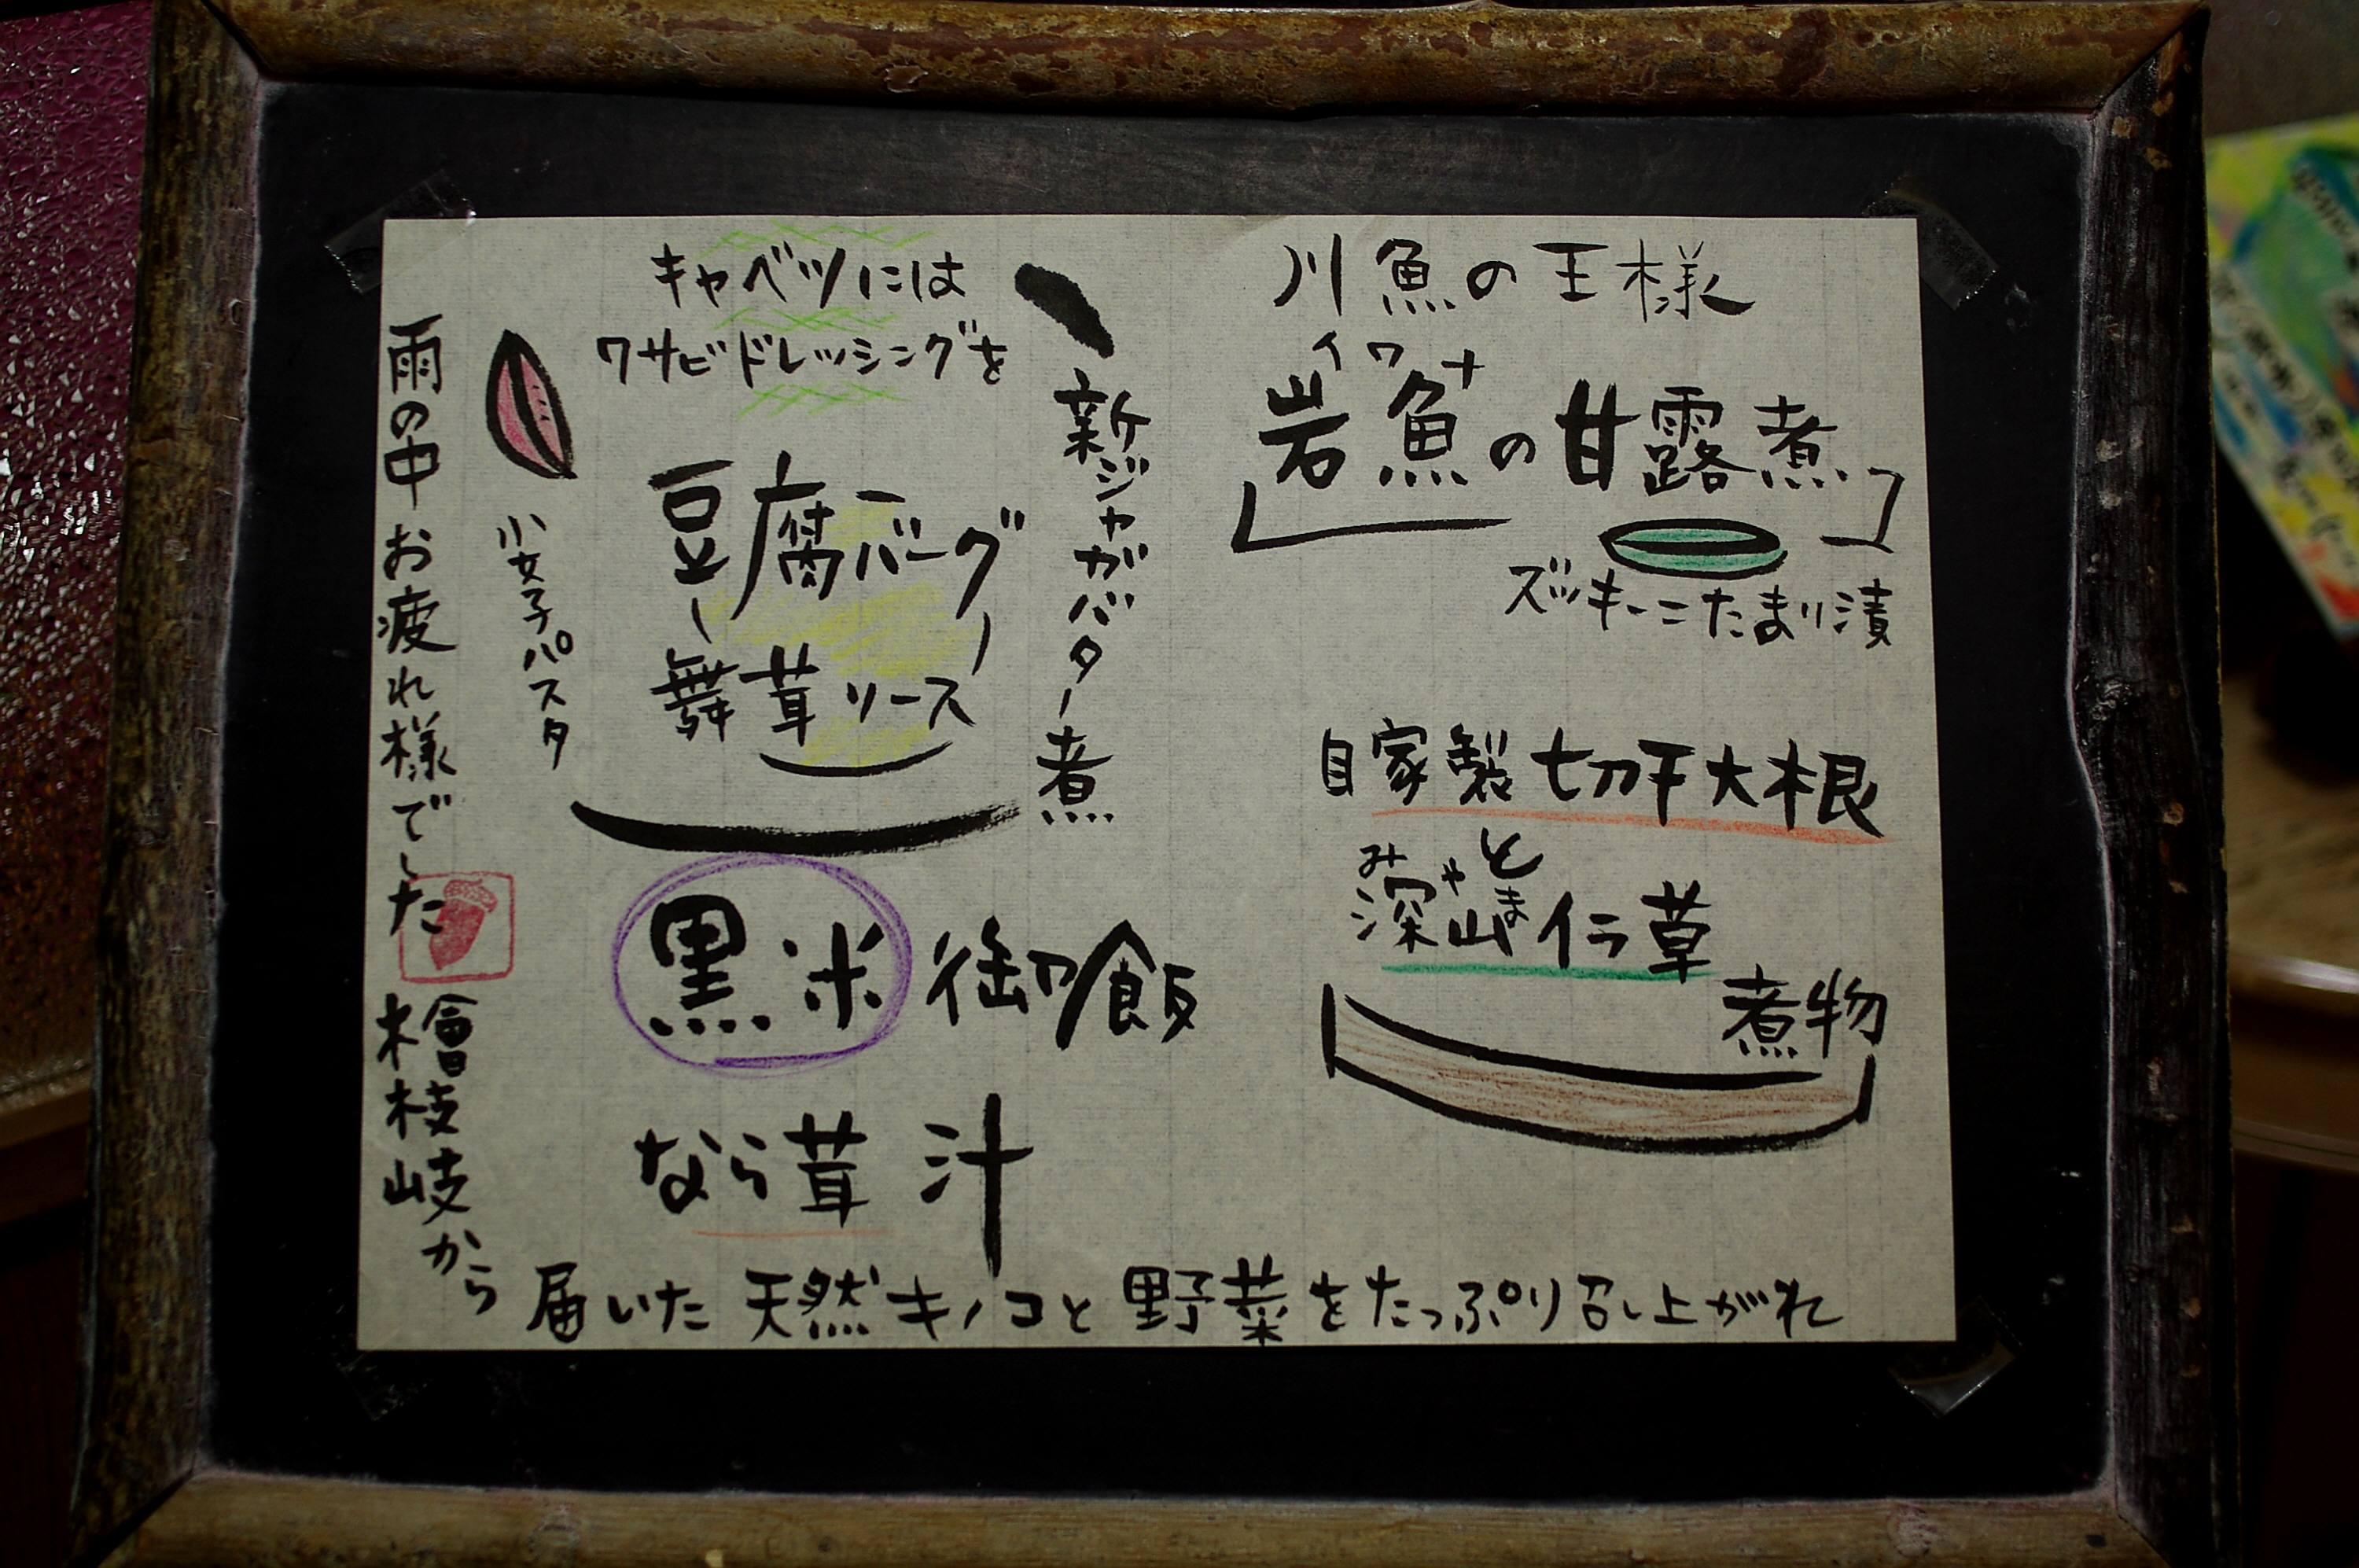 川魚の王様
イワナ
岩魚の甘露煮
ズッキーニたまり漬
自家製切干大根
と
みやま
深山イラ草
煮物
キャベツには
ワサビドレッシングを
新ジャガバター煮
豆腐バーグ
舞茸ソース
小女子パスタ
黒米御飯
なら茸汁
雨の中お疲れ様でした
檜枝岐から
届いた天然キノコと野菜をたっぷり召し上がれ